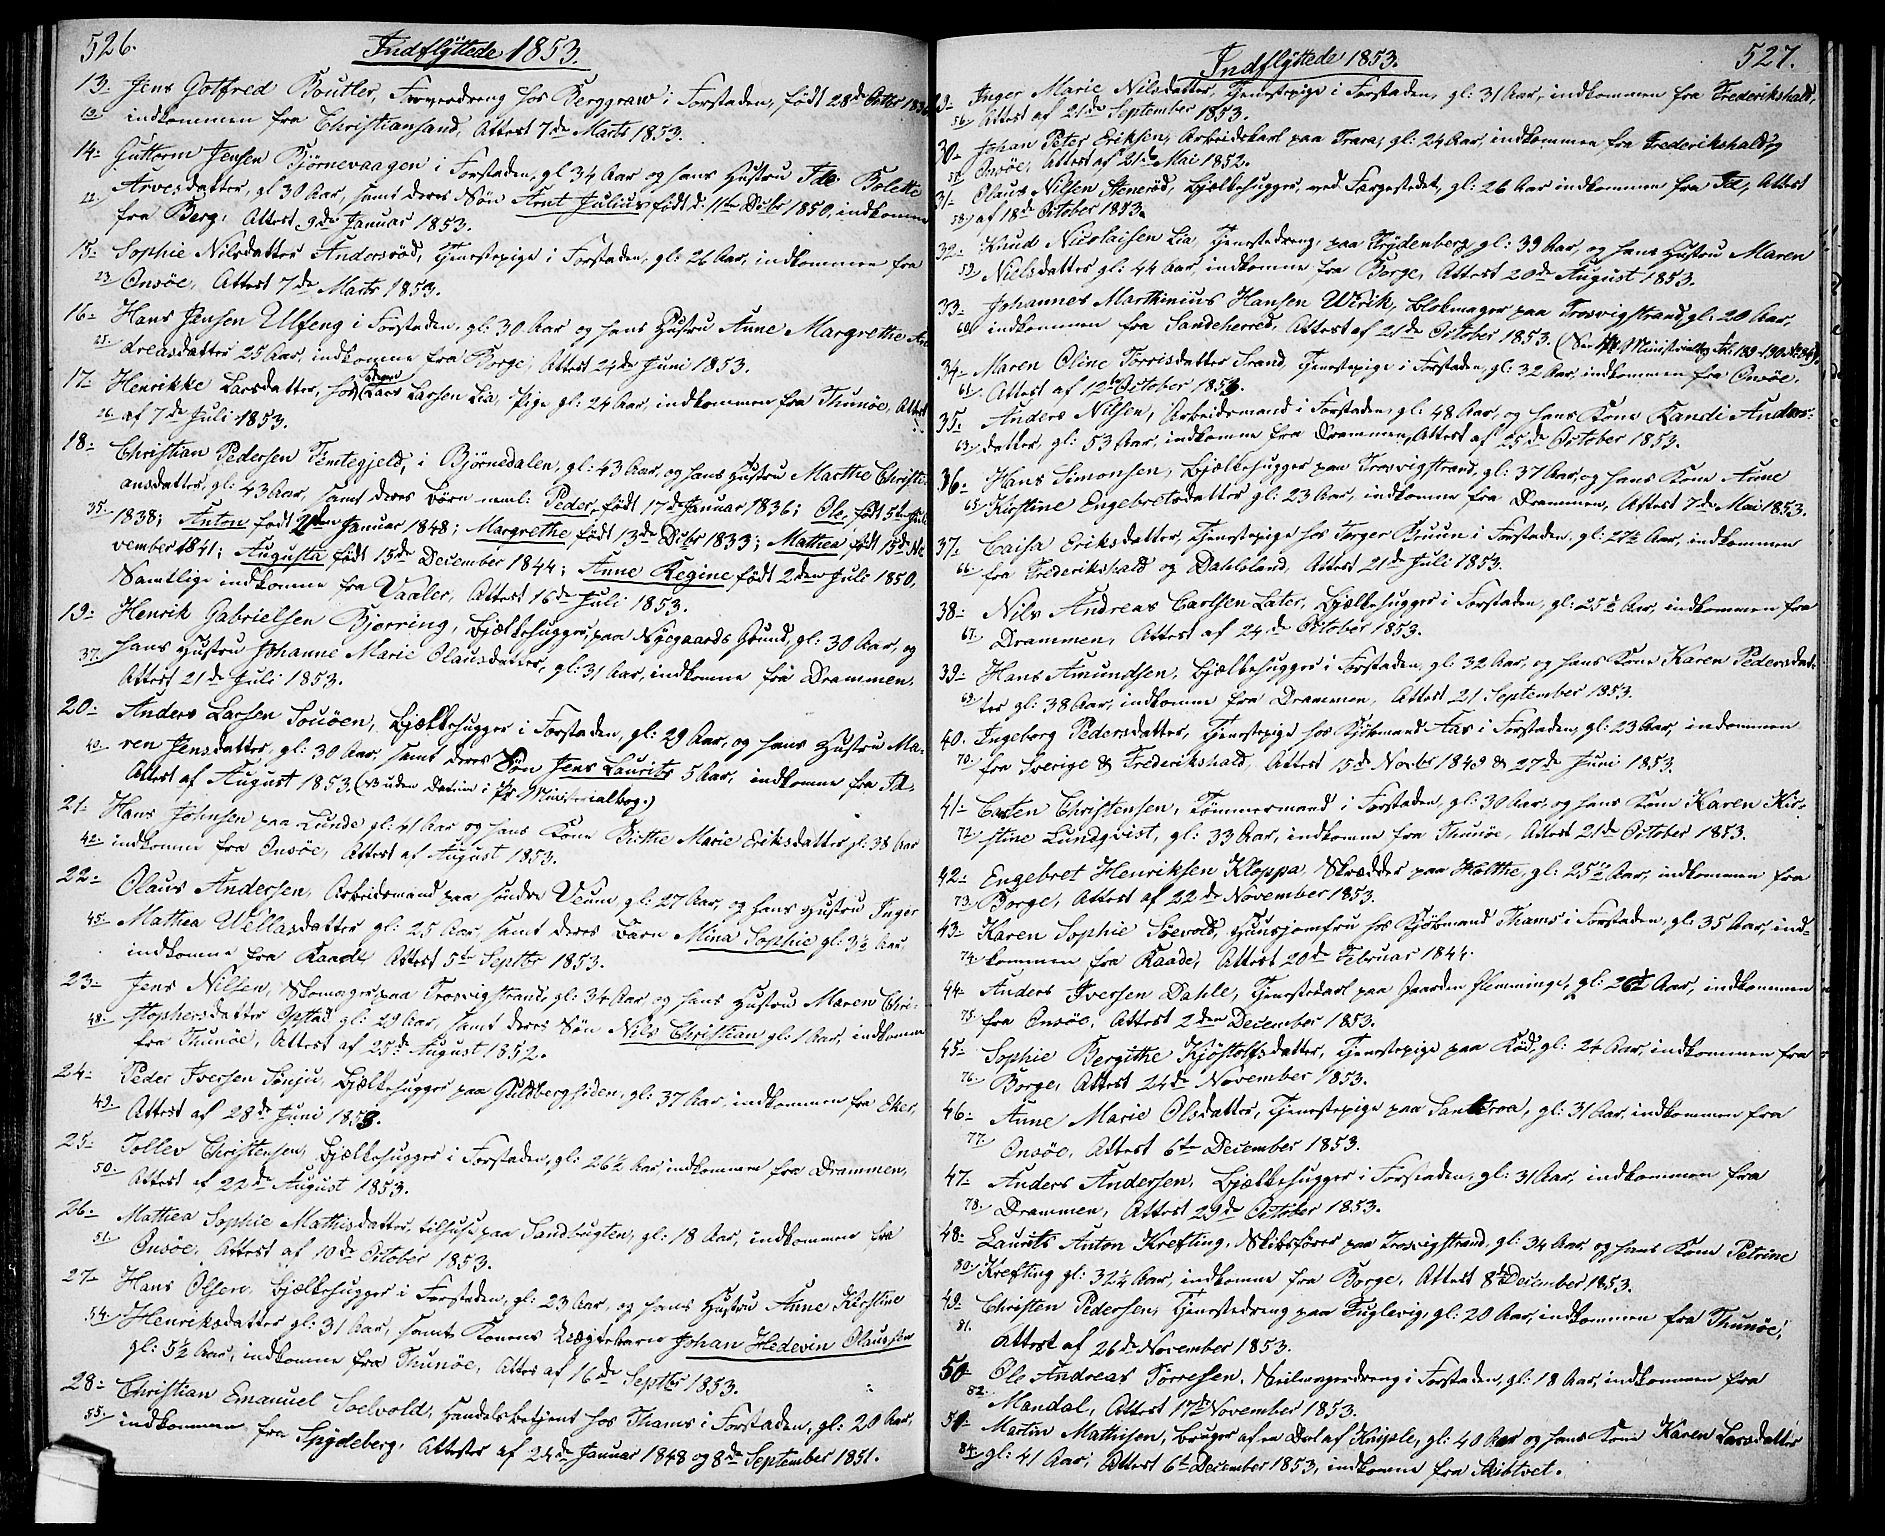 526.
Indflyttede 1853.
13. Jens Gotfred Boutler, Farverdreng hos Berggraw i Forstaden, født 28de
19. indkommen fra Christiansand, Attest 7de Marts 1853.
14. Guttorm Jensen Bjørnevaagen i Forstaden, gl 34 Aar og hans Hustru Ida Bolette
22. Arvesdatter, gl 30 Aar, samt deres Søn Arnt Julius født d. 11te Decbr 1850, indkomne
fra Berg, Attest 9de Januar 1853.
15. Sophie Nilsdatter Andersrød, Tjenestepige i Forstaden, gl: 26 Aar, indkommen fra
23. Onsøe, Attest 7de Marts 1853.
16. Hans Jensen Ulfeng i Forstaden, gl: 30 Aar og hans Hustru Anne Margrethe An
25. dreasdatter 25 Aar, indkomne fra Borge, Attest 24de Juni 1853.
17. Henrikke Larsdatter, hos Lars Larsen Lia, Pige gl: 24 Aar, indkommen fra Thunøe, Attest
26. af 7de Juli 1853.
18. Christian Pedersen Tentegjeld, i Bjørnedalen, gl: 43 Aar, og hans Hustru Marthe Christi-
ansdatter, gl: 43 Aar, samt deres Børn neml: Peder, født 17de Januar 1836; Ole, født 5te Juli
35. 1838; Anton født den Januar 1848; Margrethe, født 13de Decbr 1833; Mathea født 15de No
vember 1841; Augusta født 15de December 1844; Anne Regine født 2den Juli 1850,
Samtlige indkomne fra Vaaler, Attest 16de Juli 1853.
19. Henrik Gabrielsen Bjerring, Bjælkehugger, paa Nygaards Grund, gl: 30 Aar, og
37. hans Hustru Johanne Marie Olausdatter, gl: 31 Aar, indkomne fra Drammen,
Attest 21de Juli 1853.
20. Anders Larsen Souøen, Bjælkehugger i Forstaden, gl: 29 Aar, og hans Hustru Ma-
40. ren Jensdatter, gl: 30 Aar, samt deres Søn Jens Laurits 5 Aar, indkomne fra Id.
Attest af August 1853. (uden Datum i Ministerialbog.)
21. Hans Johnsen paa Lunde gl: 41 Aar og hans Kone Birthe Marie Eriksdatter gl: 38 Aar
42. indkomne fra Onsøe, Attest af August 1853.
22. Olaus Andersen, Arbeidsmand paa søndre Veum, gl: 27 Aar, og hans Hustru Inger
45. Mathea Willasdatter gl: 25 Aar samt deres Barn Mina Sophie gl: 3½ Aar
indkomne fra Raade, Attest 5te Septbr 1853.
23. Jens Nilsen, Skomager, paa Trosvigstrand, gl: 34 Aar og hans Hustru Maren Chri-
48. stophersdatter Opstad gl: 29 Aar, samt deres Søn Nils Christian gl: 1 Aar, indkomne
fra Thunøe, Attest af 25de August 1852.
24. Peder Iversen Sønju, Bjælkehugger paa Guldbergsiden, gl: 37 Aar, indkommen fra Eker,
49. Attest af 28de Juni 1853.
25. Tollev Christensen, Bjælkehugger i Forstaden, gl: 26½ Aar, indkommen fra Drammen,
50. Attest af 22de August 1853.
26. Mathea Sophie Mathisdatter, tilhuse paa Sandbugten, gl: 18 Aar, indkommen fra
51. Onsøe, Attest af 10de October 1853.
27. Hans Olsen, Bjælkehugger i Forstaden, gl: 23 Aar, og hans Hustru Anne Kirstine
54. Henriksdatter gl: 31 Aar, samt Konens Uægtebarn Johan Hedevin Olaussen
gl: 5½ Aar, indkomne fra Thunøe, Attest af 16de Septbr 1853.
28. Christian Emanuel Soelvold, Handelsbetjent hos Thams i Forstaden, gl: 20 Aar,
55. indkommen fra Spydeberg, Attester af 24de Januar 1848 og 8de September 1851.
527.
Indflyttede 1853.
29. Inger Marie Nilsdatter, Tjenestepige i Forstaden, gl: 31 Aar, indkommen fra Frederikshald,
56. Attest af 21de September 1853.
30. Johan Peter Eriksen, Arbeidskarl paa Trara, gl: 24 Aar, indkommen fra Frederikshald og
57. Onsøe, Attest af 21de Mai 1852.
31. Olaus Nilsen Stenerød, Bjælkehugger, ved Færgestedet, gl: 26 Aar indkommen fra Id, Attest
58. af 18de October 1853.
32. Knud Nicolaisen Lia, Tjenestedreng, paa Frydenberg gl: 39 Aar, og hans Hustru Maren
59. Nielsdatter gl: 44 Aar, indkomne fra Borge, Attest 20de August 1853.
33. Johannes Marthinius Hansen Wirik, Blokmager paa Trosvigstrand, gl: 20 Aar,
60. indkommen fra Sandeherred, Attest af 21de October 1853. (See Ministerialbog
34. Maren Oline Torrisdatter Sand, Tjenestepige i Forstaden, gl: 32 Aar, indkommen fra Onsøe,
61. Attest af 12te October 1853.
35. Anders Nilsen, Arbeidsmand i Forstaden, gl: 48 Aar, og hans Kone Randi Anders-
63. datter, gl: 53 Aar, indkomne fra Drammen, Attest af 25de October 1853.
36. Hans Simonsen, Bjælkehugger paa Trosvigstrand, gl: 37 Aar, og hans Kone Anne
65. Kirstine Engebretsdatter gl: 23 Aar, indkomne fra Drammen, Attest 7de Mai 1853.
37. Caisa Eriksdatter, Tjenestepige hos Torger Bruun i Forstaden, gl: 27½ Aar, indkommen
66. fra Frederikshald og Dahlsland, Attest 21de Juli 1853.
38. Nils Andreas Carlsen Later, Bjælkehugger i Forstaden, gl: 25½ Aar, indkommen fra
67. Drammen, Attest af 24de October 1853.
39. Hans Amundsen, Bjælkehugger i Forstaden, gl: 32 Aar, og hans Kone Karen Pedersdat-
69. ter gl: 38 Aar, indkomne fra Drammen, Attest 21 September 1853.
40. Ingeborg Pedersdatter, Tjenestepige hos Kjøbmand Aas i Forstaden, gl: 23 Aar, indkommen
70. fra Sverige & Frederikshald, Attest 15de Novbr 1849 & 27de Juni 1853.
41. Casten Christensen, Tømmermand i Forstaden, gl: 30 Aar, og hans Kone Karen Kir-
72. stine Lundqvist, gl: 33 Aar, indkomne fra Thunøe, Attest 21de October 1853.
42. Engebret Henriksen Kloppa, Skrædder paa Holthe, gl: 25½ Aar, indkommen fra
73. Borge, Attest af 22de November 1853.
43. Karen Sophie Søevold, Huusjomfru hos Kjøbmand Thams i Forstaden, gl: 35 Aar, ind-
74. kommen fra Raade, Attest 20de Februar 1844.
44. Anders Iversen Dahle, Tjenestekarl paa Gaarden Flemminge, gl: 26½ Aar, indkommen
75. fra Onsøe, Attest 2den December 1853.
45. Sophie Bergithe Kjøstolfsdatter, Tjenestepige paa Rød, gl: 24 Aar, indkommen fra
76. Borge, Attest 24de November 1853.
46. Anne Marie Olsdatter, Tjenestepige paa , gl: 31 Aar, indkommen fra
77. Onsøe, Attest 6te December 1853.
47. Anders Andersen, Bjælkehugger i Forstaden, gl: 31 Aar, indkommen fra
78. Drammen, Attest 29de October 1853.
48. Laurits Anton Krefting, Skibsfører paa Trosvigstrand, gl: 34 Aar, og hans Kone Petrine
80. Krefting gl: 32½ Aar, indkomne fra Borge, Attest 8de December 1853.
49. Christen Pedersen, Tjenestedreng paa Fuglevig, gl: 20 Aar, indkommen fra Thunøe,
81. Attest af 26de November 1853.
50. Ole Andreas Tørresen, Seilmagerdreng i Forstaden, gl: 18 Aar, indkommen fra
82. Mandal, Attest 17de November 1853.
51. Martin Mathisen, bruger af en Deel af Knipsle, gl: 40 Aar og hans Kone Karen Larsdatter
84. gl: 41 Aar, Attest 6te December 1853, indkomne fra Skibtvet.